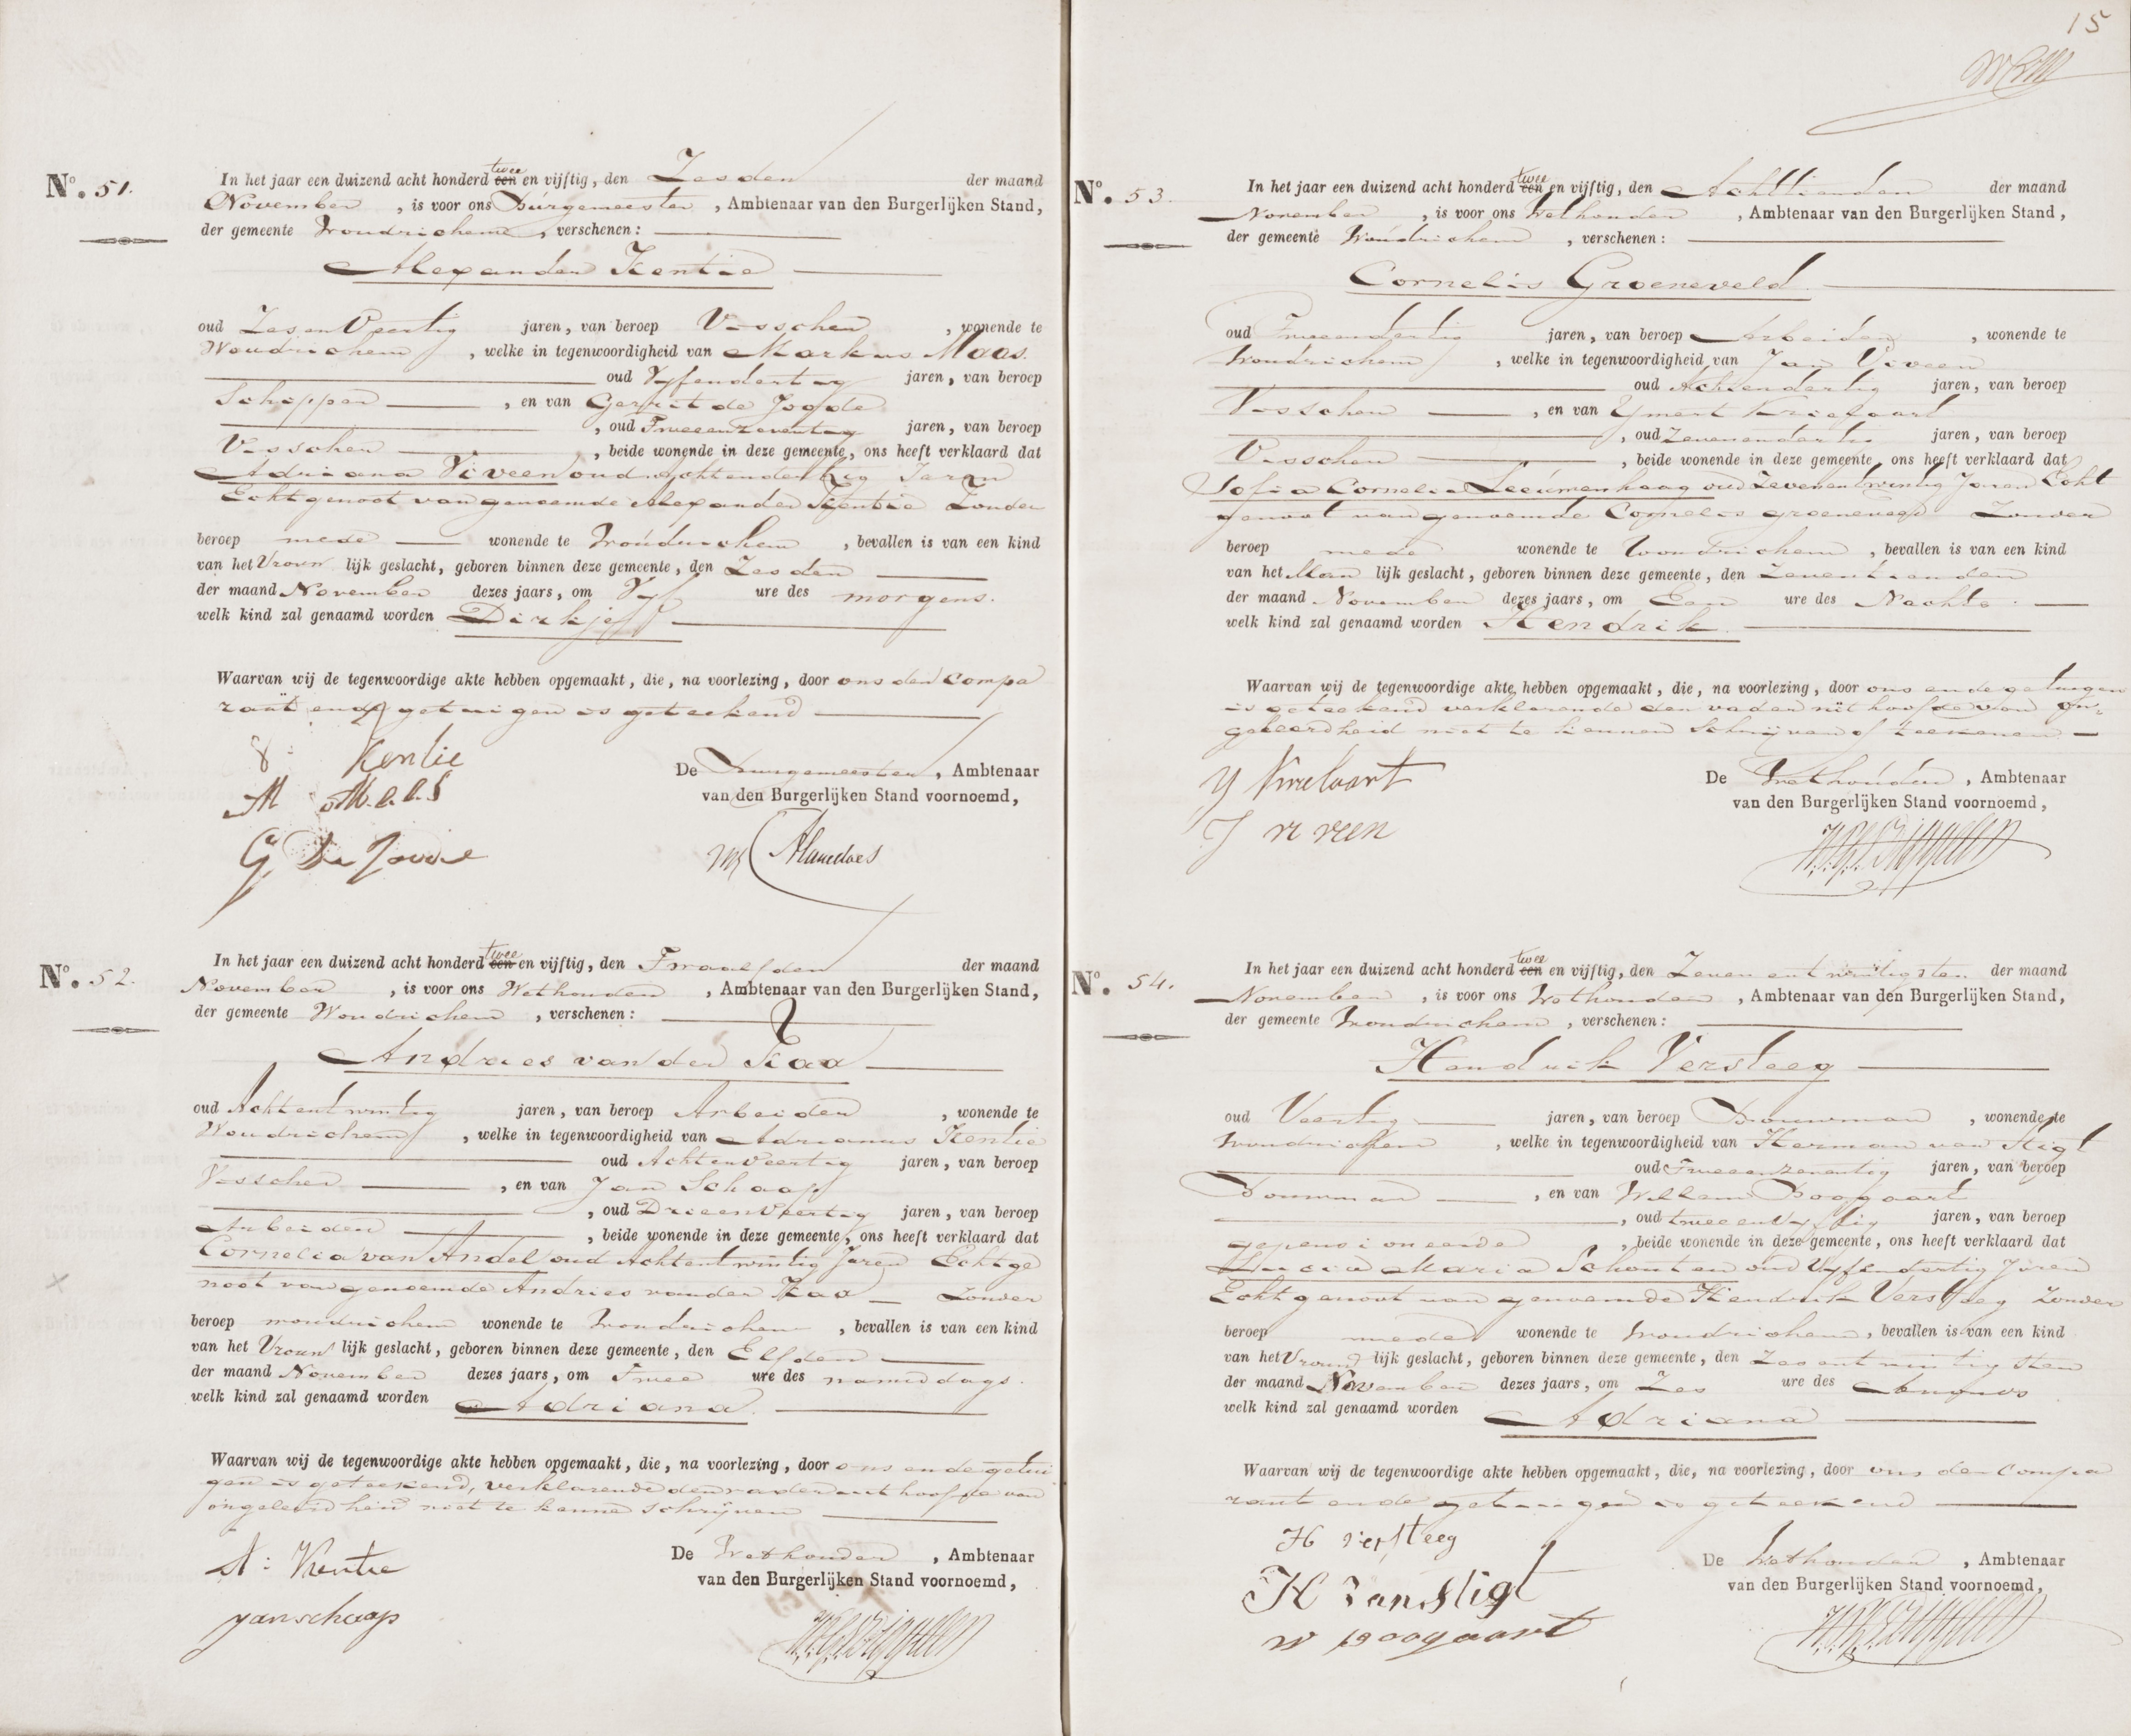 No. 51.
In het jaar een duizend acht honderd twee en vijftig, den Zesden der maand
November, is voor ons Burgemeester, Ambtenaar van den Burgerlijken Stand,
der gemeente Woudrichem, verschenen:
Alexander Kentie
oud Zes en Veertig jaren, van beroep Visscher, wonende te
Woudrichem, welke in tegenwoordigheid van Markus Maas
oud Vyfendertig jaren, van beroep
Schipper, en van Gerrit de Joode
, oud Tweeenzeventig jaren, van beroep
Visscher, beide wonende in deze gemeente, ons heeft verklaard dat
Adriana Viveen oud Achtendertig Jaren
Echtgenoot van genoemde Alexander Kentie Zonder
beroep mede wonende te Woudrichem, bevallen is van een kind
van het Vrouw lijk geslacht, geboren binnen deze gemeente, den Zesden
der maand November dezes jaars, om Vyf ure des morgens.
welk kind zal genaamd worden Dirkje
Waarvan wij de tegenwoordige akte hebben opgemaakt, die, na voorlezing, door ons den Compa
rant en de getuigen is geteekend
Kentie
M Maas
G De Joode
De Burgemeester, Ambtenaar
van den Burgerlijken Stand voornoemd,
No. 52.
In het jaar een duizend acht honderd twee en vijftig, den Twaalfden der maand
November, is voor ons Wethouder, Ambtenaar van den Burgerlijken Stand,
der gemeente Woudrichem, verschenen:
Andries van der Kaa
oud Achtentwintig jaren, van beroep Arbeider, wonende te
Woudrichem, welke in tegenwoordigheid van Adrianus Kentie
oud Achtenveertig jaren, van beroep
Visscher, en van Jan Schaap
, oud Drieenveertig jaren, van beroep
Arbeider, beide wonende in deze gemeente, ons heeft verklaard dat
Cornelia van Andel oud Achtentwintig Jaren Echtge
noot van genoemde Andries van der Kaa Zonder
beroep woudrichem wonende te Woudrichem, bevallen is van een kind
van het Vrouw lijk geslacht, geboren binnen deze gemeente, den Elfden
der maand November dezes jaars, om Twee ure des namiddags.
welk kind zal genaamd worden Adriana.
Waarvan wij de tegenwoordige akte hebben opgemaakt, die, na voorlezing, door ons en de getui
gen is geteekend, verklarende den vader uit hoofde van
ongeleerdheid niet te kenne schrijven
A: Kentie
janschaap
De Wethouder, Ambtenaar
van den Burgerlijken Stand voornoemd,
15
No. 53.
In het jaar een duizend acht honderd twee en vijftig, den Achttienden der maand
November, is voor ons Wethouder, Ambtenaar van den Burgerlijken Stand,
der gemeente Woudrichem, verschenen:
Cornelis Groeneveld.
oud Tweeendertig jaren, van beroep Arbeider, wonende te
Woudrichem, welke in tegenwoordigheid van Jan Viveen
oud Achtendertig jaren, van beroep
Visscher, en van Ymert
, oud Zevenendertig jaren, van beroep
Visscher, beide wonende in deze gemeente, ons heeft verklaard dat
Sofia Cornelia Leeuwenhaag oud Zevenentwintig Jaren Echt
genoot van genoemde Cornelis groeneveld Zonder
beroep mede wonende te Woudrichem, bevallen is van een kind
van het Man lijk geslacht, geboren binnen deze gemeente, den Zeventienden
der maand November dezes jaars, om Een ure des Nachts.
welk kind zal genaamd worden Hendrik.
Waarvan wij de tegenwoordige akte hebben opgemaakt, die, na voorlezing, door ons en de getuigen
is geteekend verklarende den vader uit hoofde van on-
geleerdheid niet te kennen Schrijven of teekenen
J viveen
De Wethouder, Ambtenaar
van den Burgerlijken Stand voornoemd,
No. 54.
In het jaar een duizend acht honderd twee en vijftig, den Zeven entwintigsten der maand
November, is voor ons Wethouder, Ambtenaar van den Burgerlijken Stand,
der gemeente Woudrichem, verschenen:
Hendrik Versteeg
oud Veertig jaren, van beroep Bouwman, wonende te
Woudrichem, welke in tegenwoordigheid van Herman van Stigt
oud Tweeenzeventig jaren, van beroep
Bouwman, en van Willem Boogaart
, oud tweeenvyftig jaren, van beroep
gepensioneerde, beide wonende in deze gemeente, ons heeft verklaard dat
Lucia Maria Schouten oud Vyfendertig Jaren
Echtgenoot van genoemde Hendrik Versteeg Zonder
beroep mede wonende te Woudrichem, bevallen is van een kind
van het Vrouw lijk geslacht, geboren binnen deze gemeente, den Zesentwintigsten
der maand November dezes jaars, om Zes ure des Avonds
welk kind zal genaamd worden Adriana
Waarvan wij de tegenwoordige akte hebben opgemaakt, die, na voorlezing, door ons den Compa
rant en de getuigen is geteekend
H versteeg
H van Stigt
W Boogaart
De Wethouder, Ambtenaar
van den Burgerlijken Stand voornoemd,